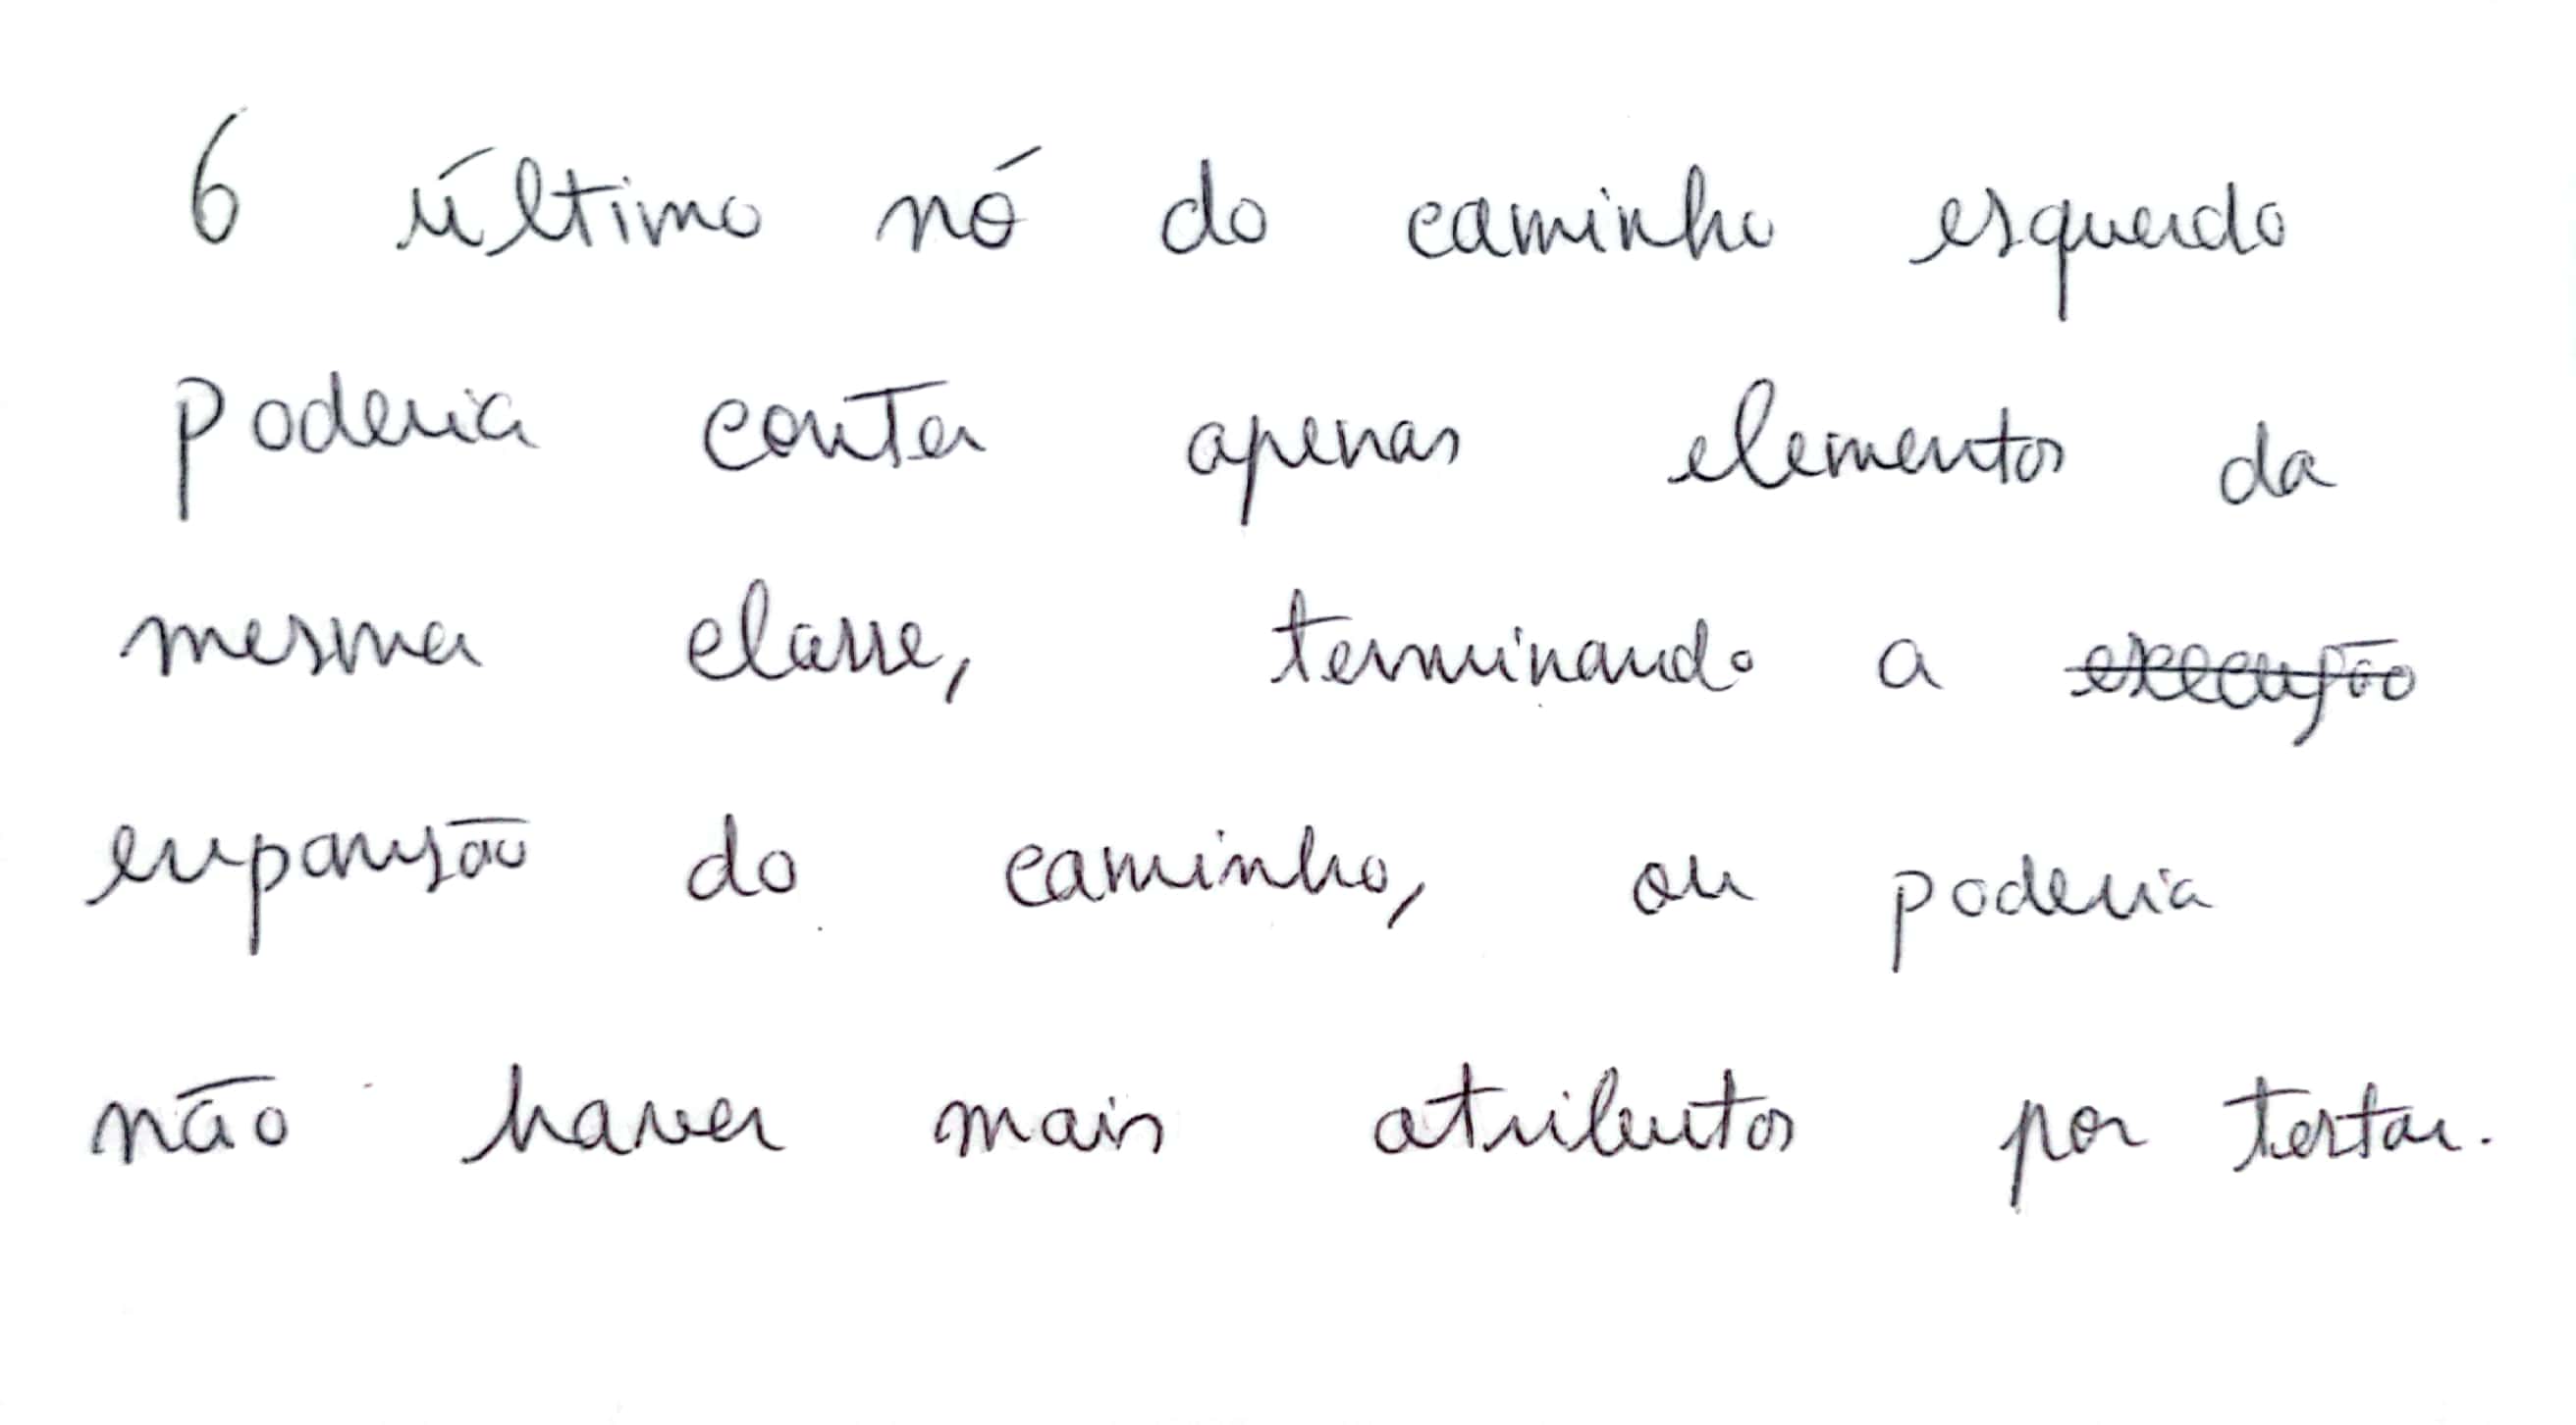 O último nó do caminho esquerdo
poderia conter apenas elementos da
mesma classe, terminando a execução
expansão do caminho, ou poderia
não haver mais atributos por testar.